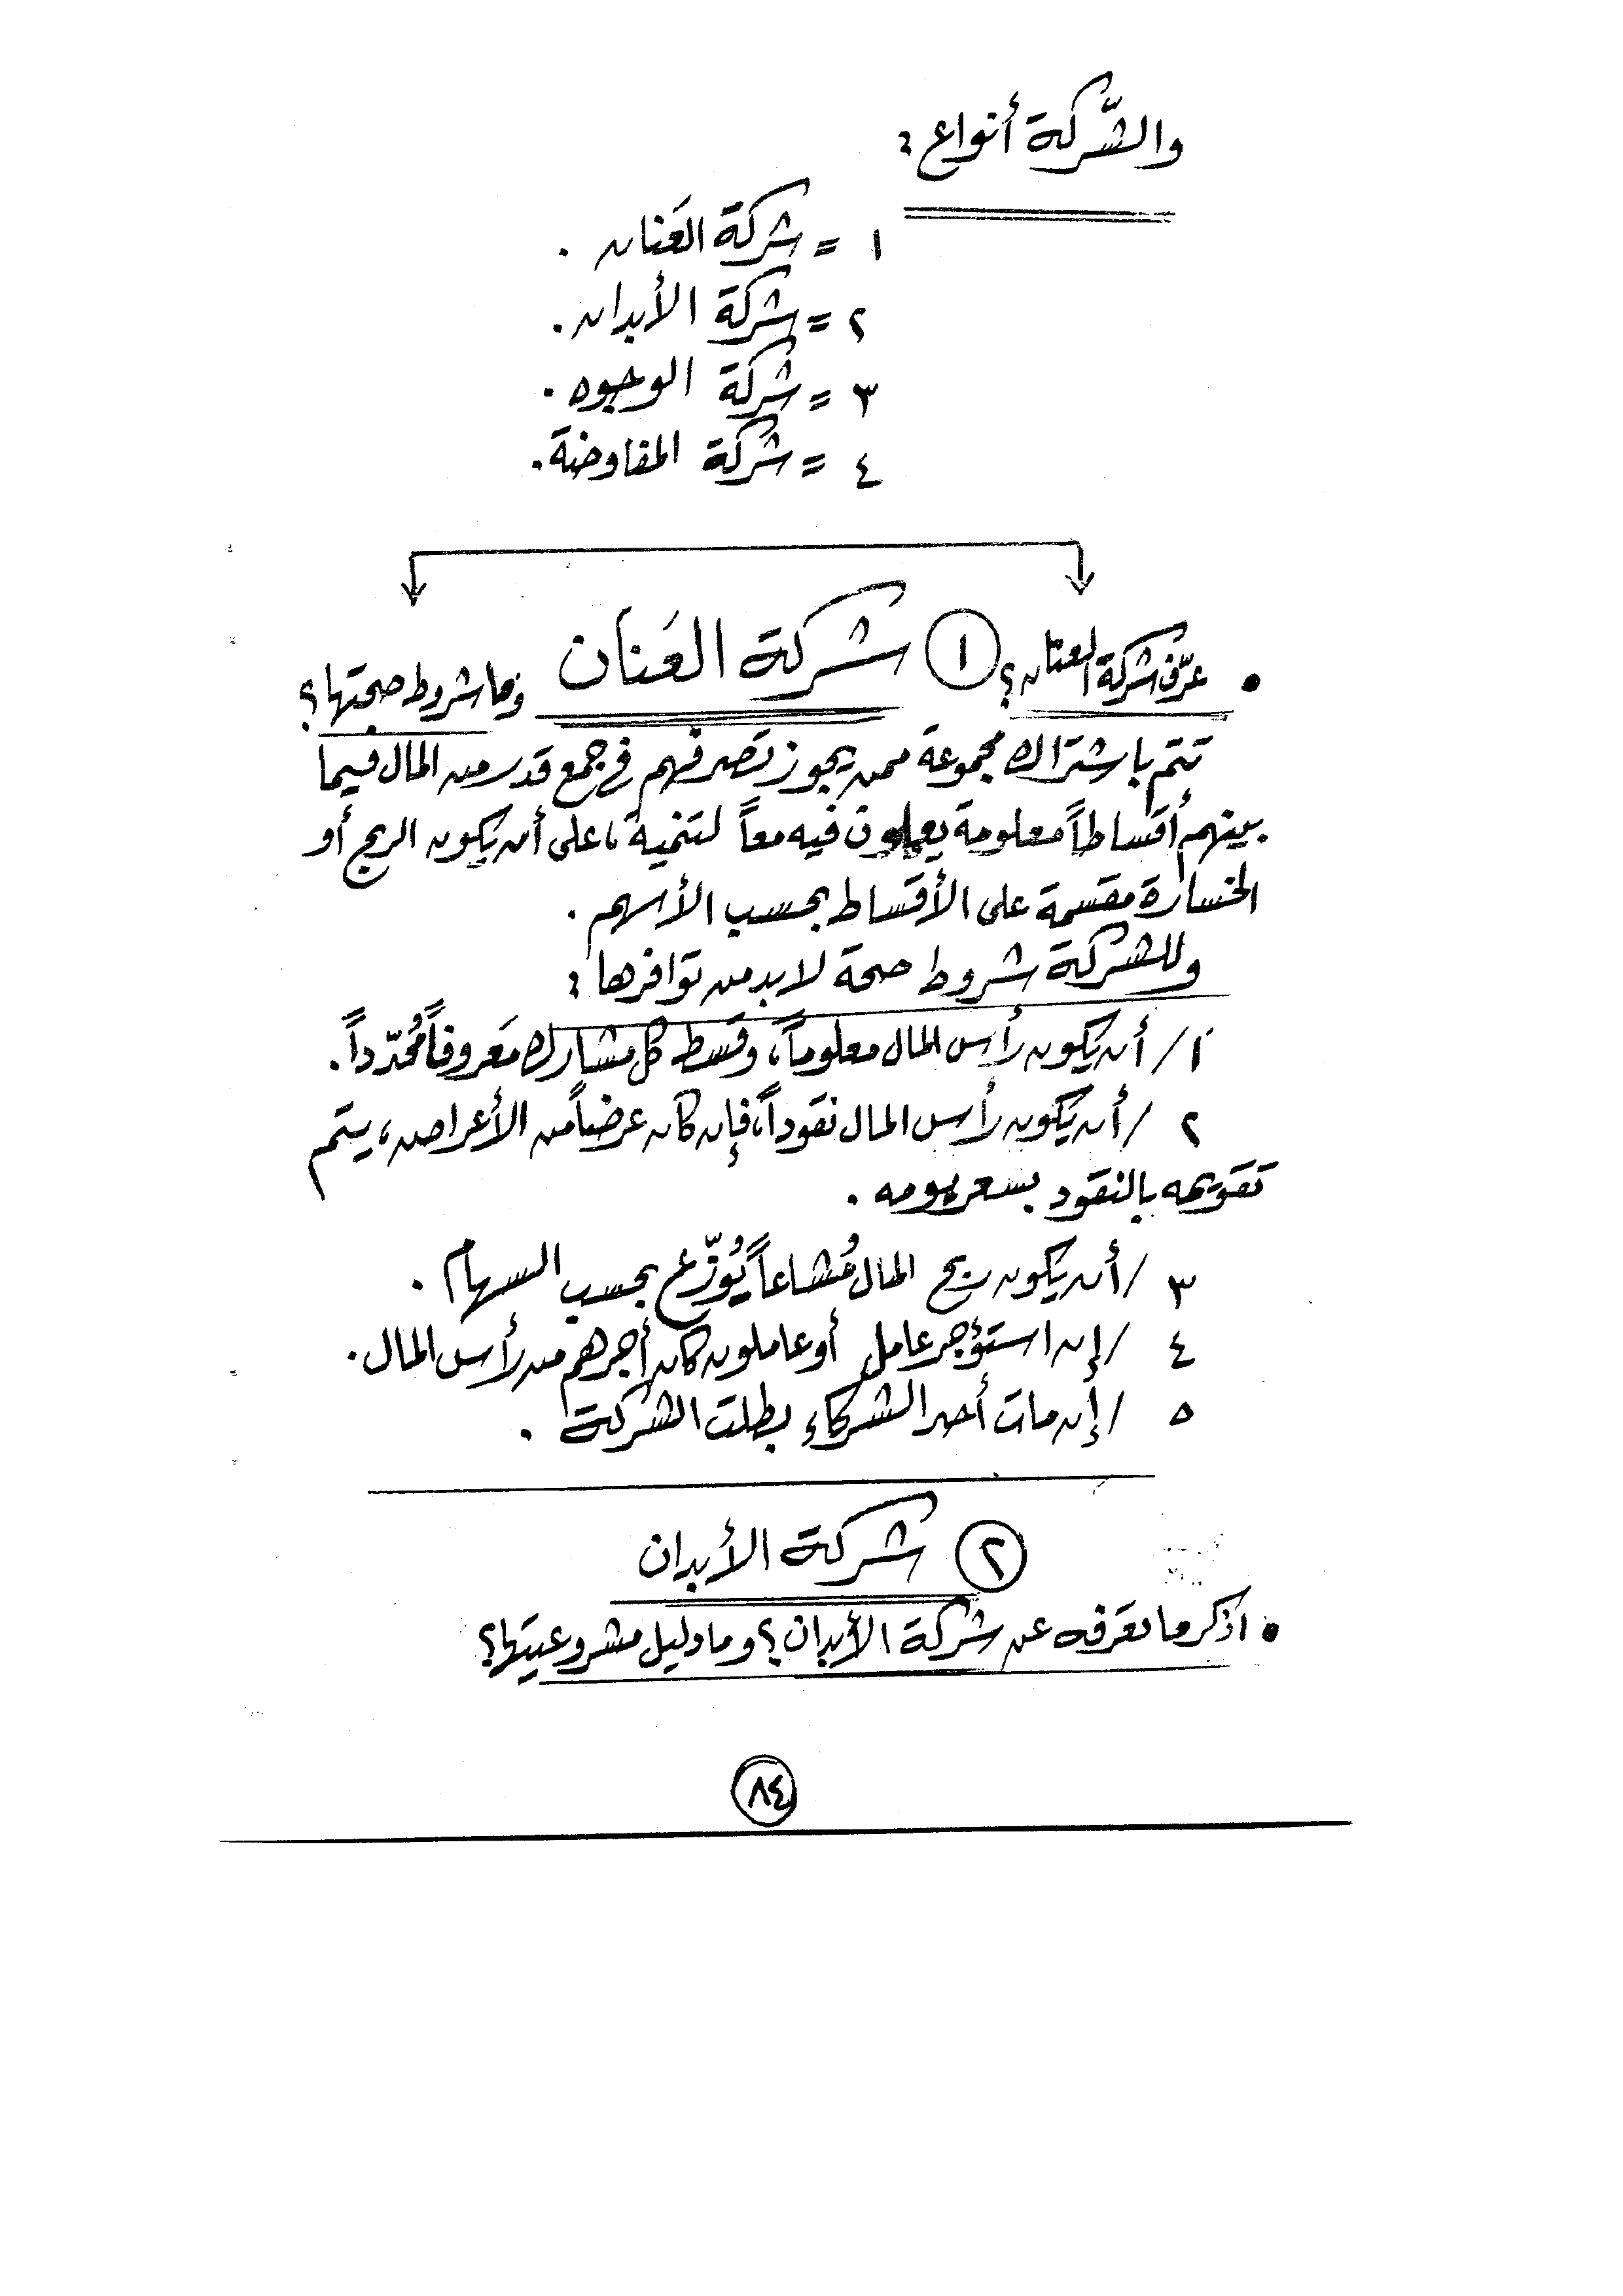 والشّركة أنواع :
١ = شركة العَنان .
٢ = شركة الأبدان .
٣ = شركة الوجوه .
٤ = شركة المفاوضة .
• عرّف شركة العنان ؟ ① شركة العَنان وما شروط صحتها ؟
تتم باشتراك مجموعة ممن يجوز تصرفهم في جمع قدر من المال فيما
بينهم أقساطاً معلومة يعملون فيه معاً لتنمية ، على أن يكون الربح أو
الخسارة مقسمة على الأقساط بحسب الأسهم .
وللشركة شروط صحة لا بد من توافرها :
١ / أن يكون رأس المال معلوماً ، وقسط كل مشارك مَعروفاً مُحدّداً .
٢ / أن يكون رأس المال نقوداً ، فإن كان عرضاً من الأعراض ، يتم
تقويمه بالنقود بسعر يومه .
٣ / أن يكون ربح المال مُشاعاً يُوزّع بحسب السهام .
٤ / إن استؤجر عامل أو عاملون كان أجرهم من رأس المال .
٥ / إن مات أحد الشركاء بطلت الشركة .
② شركة الأبدان
• اذكر ما تعرفه عن شركة الأبدان ؟ وما دليل مشروعيتها ؟
٨٤